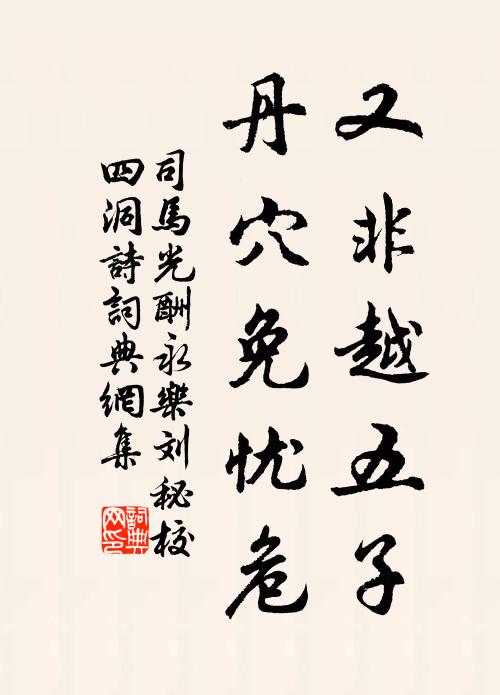 又非越五子
丹穴免忧危
司馬光酬永樂刘秘校
四洞詩詞典網集
詞典网印